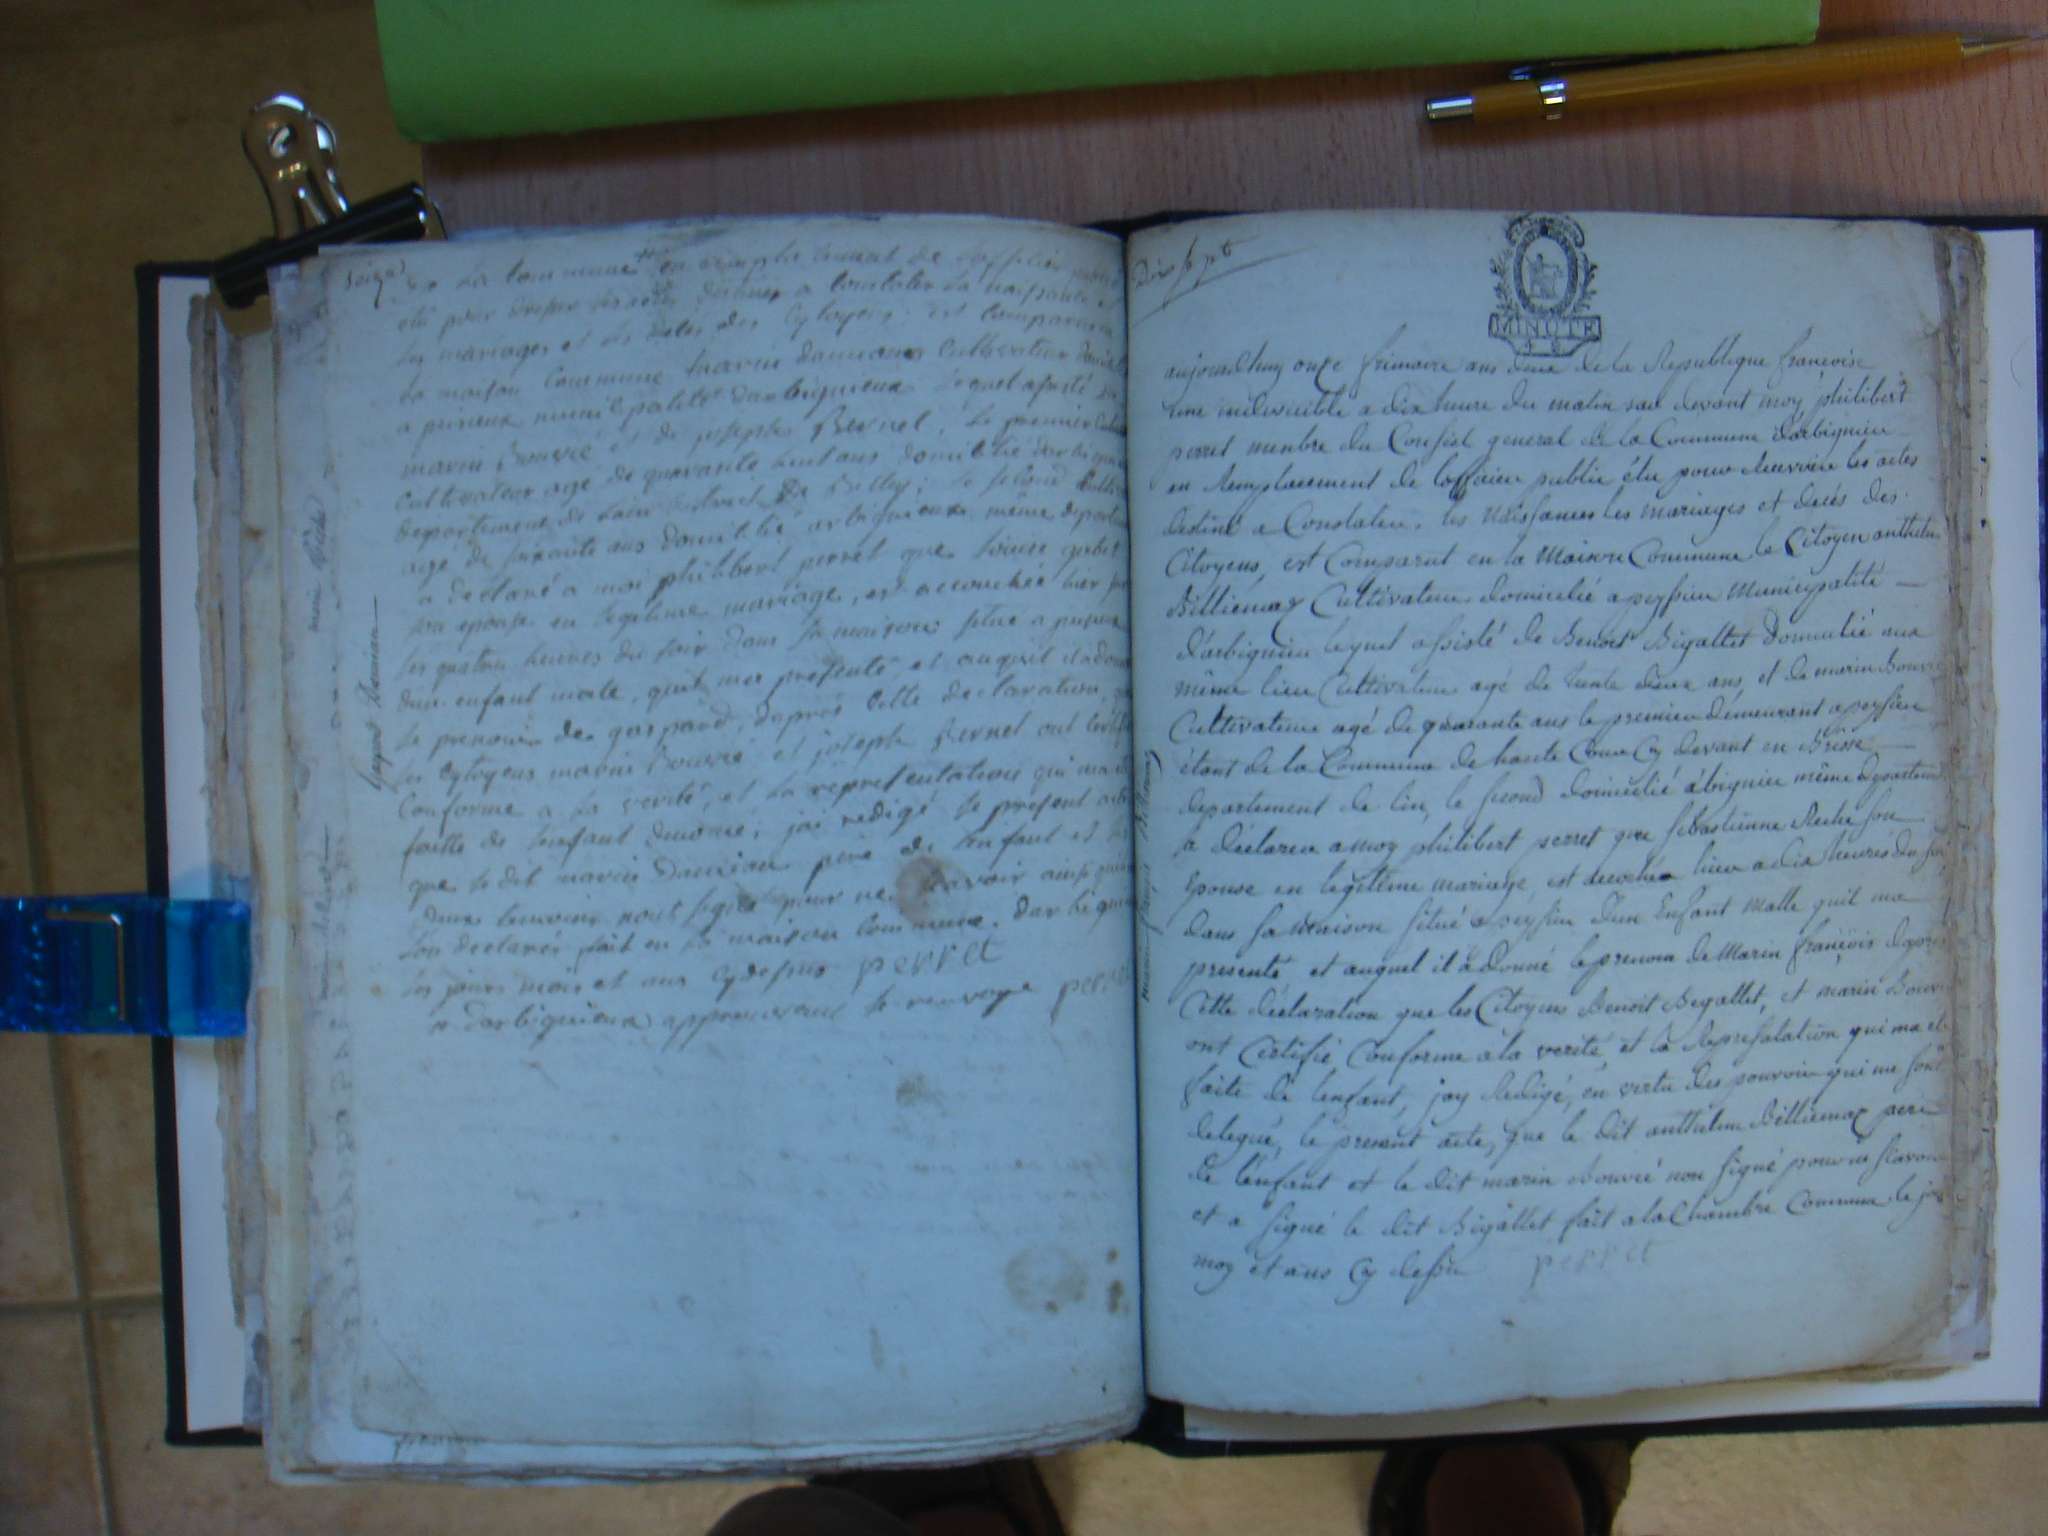 seize
de la Commune en remplacement de lofficier public
élu pour dresser les actes destinés a constater la naissance
les mariages et les décès des Cytoyens; est comparu en
la maison Commune marin damians Cultivateur domicilié
a peisieux municipalité darbignieux lequel assisté de
marin bouvié et de joseph Bernel, le premier
Cultivateur agé de quarante huit ans domicilié darbignieux
departement de lain district de Belley; le segond
agé de soixante ans domicilié arbignieux même departement
a declaré a moi philibert perret que
son epouse en legitime mariage, est accouchée hier
les quatre heures du soir dans sa maison situé a peisieux
dun enfant male, quil ma présenté, et auquel il a donné
le prenoms de gaspard, daprès cette declaration,
les Cytoyens marin bouvié et joseph Bernel ont certifié
Conforme a la vérité, et la representation qui ma été
faitte de lenfant denomé; jai redigé le present acte
que le dit marin Damian pere de lenfant et les
deux temoins nont signé pour ne savoir ainsi
lon declarés fait en la maison Commune darbignieux
les jours mois et ans cydessus perret
darbignieux approuvant le renvoye perret
gaspard Damian
Dix sept
MINUTE
aujourdhuy onze frimaire ans deux de la Republique françoise
une indivisible a dix heure du matin par devant moy philibert
perret menbre du Conseil general de la Commune darbignieu
en Remplacement de loffficier publie élu pour Recevoire les actes
destiné a Constater, les Naissances les mariages et decés des
Citoyens, est Comparut en la Maison Commune le Citoyen anthelme
Billiemaz Cultivateur domicilié a peysieu Municipalité
d'arbignieu lequel assisté de Benoit Bigallet Domicilié aux
même lieu Cultivateur agé de trente deux ans, et de marin Bouvié
Cultivateur agé de quarante ans le premier demeurant a peysieu
étant de la Commune de haute Cour Cy devant en Bresse
departement de lin, le second domicilié arbignieu même departement
a déclarer a moy philibert perret que sebastienne Reche son
Epouse en legitime mariage, est accochée hier a dix heures du soir
dans sa maison situé a peysieu d'un Enfant Malle quil ma
presenté, et auquel il a donné le prenom de Marin françois dapres
Cette déclaration que les Citoyens Benoit Begallet, et marin Bouvié
ont Certifié Conforme a la verité, et la Represatation qui ma été
faite de lenfant, jay Redigé, en vertu des pouvoir qui me sont
delegué, le present acte, que le dit anthelme Billiemaz pere
de l'enfant et le dit marin Bouvié non signé pour ne savoir
et a signé le dit Bigallet fait a la Chambre Commune le jour
moy et ans Cy dessu perret
marin françois Billiemaz